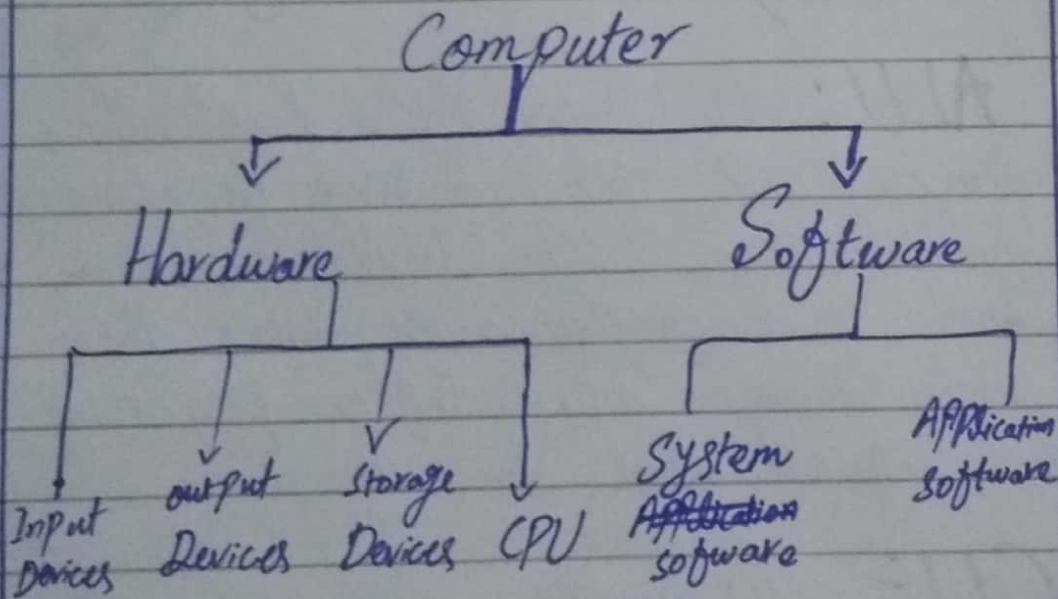 Computer
Hardware Software
Input Devices
output Devices
Storage Devices
CPU
System
Application
sofware
Application
software